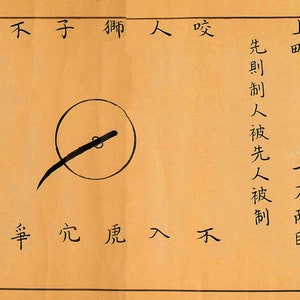 先則制人被先人被制
咬人獅子不
不入虎穴爭